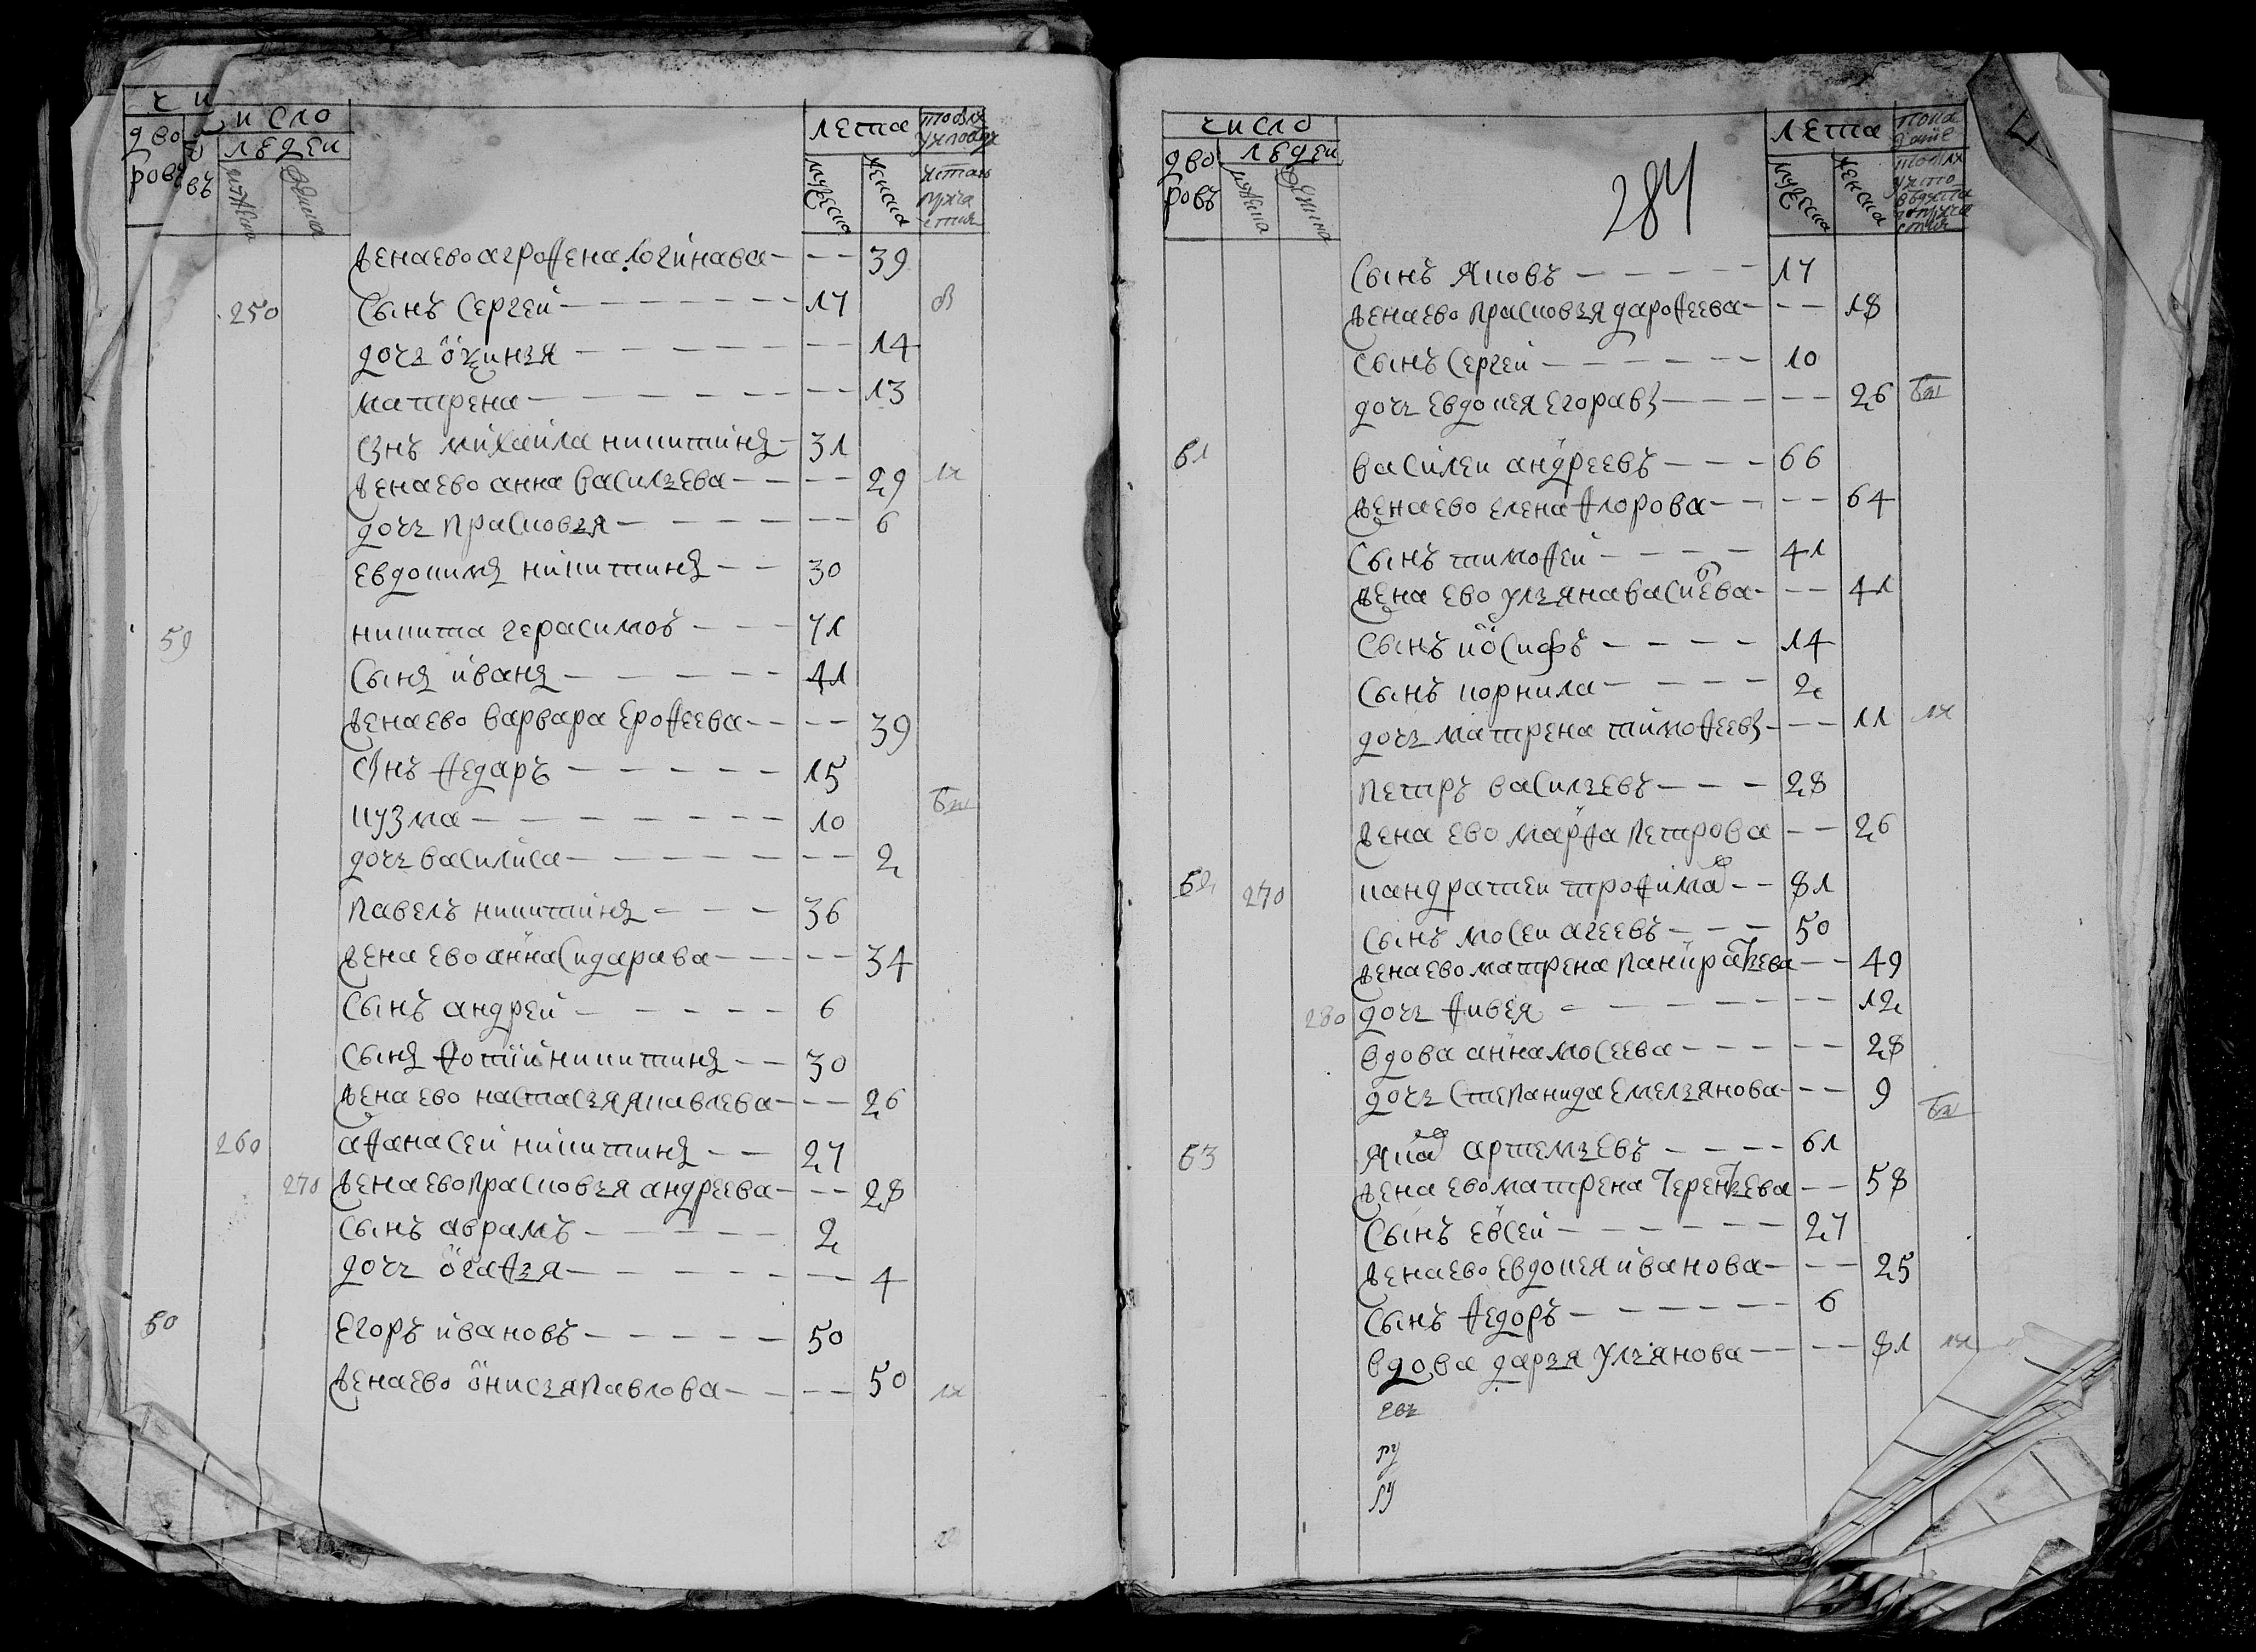 число
дворовъ
людеи
лета
мужеска
женска
жена ево агрофена логинава - - 39
250 Сынъ Сергеи - 17
дочь оѯинья - - 14
матрена - - 13
сынъ михаила никитинъ - 31
жена ево анна васильева - - 29
дочь прасковья - - 6
евдокимъ никитинъ - - 30
59 никита герасимовъ - - - 71
Сынъ иванъ - 41
жена ево варвара ерофеева - - 39
Сынъ федаръ - 15
кузма - 10
дочь василиса - - 2
павелъ никитинъ - - - 36
жена ево анна Сидарава - - 34
Сынъ андреи - 6
Сынъ фотии никитинъ - - 30
жена ево настасья яковлева - - 26
260 афанасеи никитинъ - - 27
270 жена ево прасковья андреева - - 28
Сынъ аврамъ - 2
дочь огафья - - 4
60 Егоръ ивановъ - 50
жена ево онисья павлова - - 50
число
дворовъ
людеи
лета
мужеска
женска
284
Сынъ яковъ - 17
жена ево прасковья дарофеева - - 18
сынъ Сергеи - 10
дочь евдокея егоравъ - - 26
61 василеи андреевъ - - - 66
жена ево елена флорова - - 64
Сынъ тимофеи - 41
жена ево ульяна васиева - - 41
Сынъ иосифъ - 14
Сынъ корнила - 2
дочь матрена тимофеевъ - - 11
петръ васильевъ - - - 28
жена ево марфа петрова - - 26
62 270 кандратеи трофимав - - 81
Сынъ мосеи агеевъ - - - 50
жена ево матрена панкратьева - - 49
280 дочь фивея - - 12
вдова анна мосеева - - 28
дочь степанида емельянова - - 9
63 якав артемьевъ - 61
жена ево матрена терентьева - - 58
Сынъ евсеи - 27
жена ево евдокея иванова - - 25
Сынъ федоръ - 6
вдова дарья ульянова - - 81
ру
ру